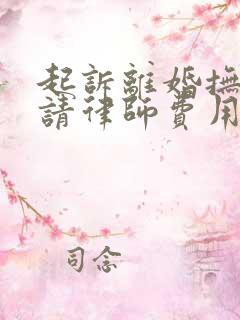 起訴離婚撫
請律師費用
司念